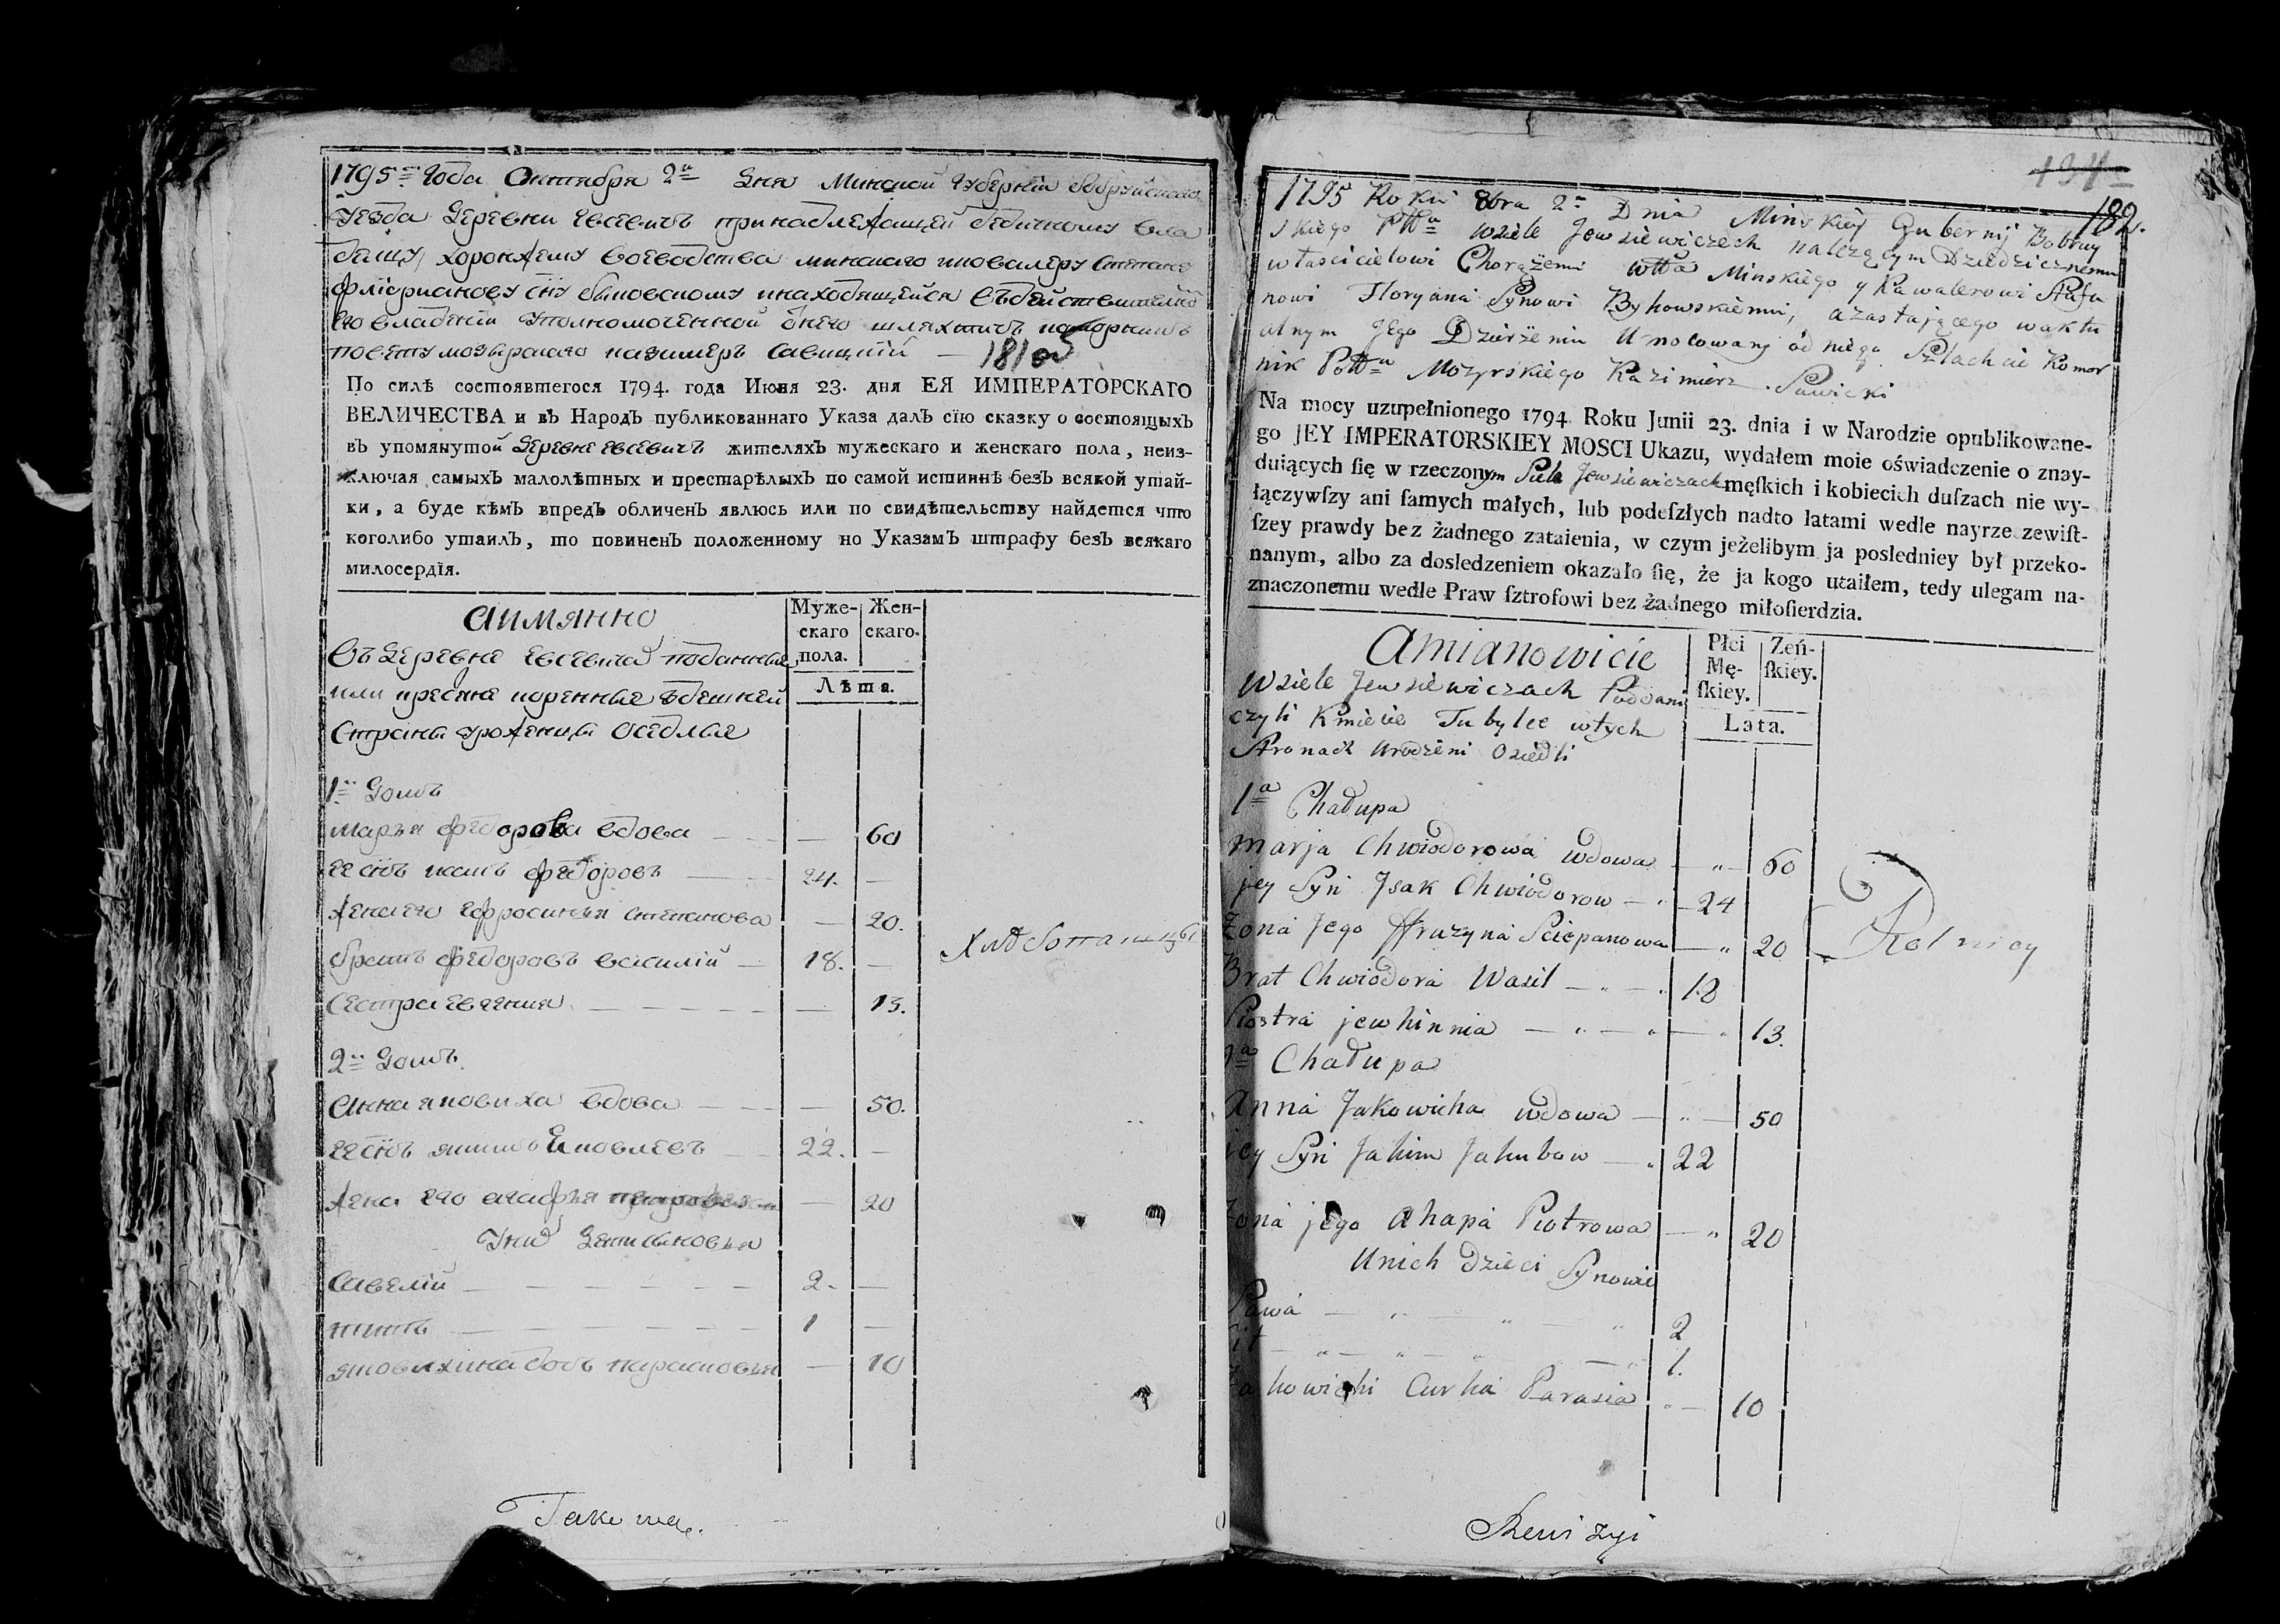 1795го Года Октября 2го Дня Минской Губернїи Бобруйскаго
уезда Деревни Евсевичъ принадлежащей Ведичному вла
дельцу, хоронжему воеводства минскаго
флїориановусну Быковскому инаходящейся
Его владенїи Уполномоченной Онего шляхтичъ коморникъ
повету мозырского казимеръ Савицкїй — 181 об
По силѣ состоявшегося 1794. года Июня 23. дня ЕЯ ИМПЕРАТОРСКАГО
ВЕЛИЧЕСТВА и въ Народъ публикованнаго Указа далъ сїю сказку о состоящыхъ
въ упомянутой Деревне Евсевичъ жителяхъ мужескаго и женскаго пола, неиз-
ключая самыхъ малолѣтных и престарѣлыхъ по самой истиннѣ безъ всякой утай-
ки, а буде кѣмъ впредъ обличенъ явлюсь или по свидѣтельству найдется что
коголибо утаилъ, то повиненъ положенному по Указамъ штрафу безъ всякаго
милосердїя.
Аимянно
Муже-
скаго
пола.
Жен-
скаго.
Лѣта.
Въ Деревне Евсевичах подданные
или кресяне коренные здешней
Страны уроженцы Оседлые
1й Домъ
Марья федорова вдова — 60
Ее снъ исакъ федоровъ 24. —
Жена его Ефросинья степанова — 20.
братъ федоровъ василїй — 18. —
Сестра евгения — 13.
Хлебопашцы
2й Домъ
Анна яковиха вдова — 50.
Ее снъ якимъ Яковлевъ 22. —
Жена его агафья петрова — 20
Уних Дети сыновья
Савелїй — 2. —
титъ — 1 —
яковихина дочь парасковья — 10
Такима.
134
182.
1795 Roku 8bra 2o Dnia Minskiey Gubernij Bobruy
skiego Pttu wsiele Jewsiewiczach nalezącym Dziedzicznemu
włascicielowi Chorązemu wttwa Minskiego y Kawalerowi Stefa
nowi Floryana Synowi Byhowskiemu, azastającego waktu
alnym Jego Dzierzeniu Umocowany od niego Szlachcic Komor
nik Pottu Mozyrskiego Kazimierz Sawicki
Na mocy uzupełnionego 1794 Roku Junii 23. dnia i w Narodzie opublikowane-
go JEY IMPERATORSKIEY MOSCI Ukazu, wydałem moie oświadczenie o znay-
duiących ſię w rzeczonym Siele Jewsiewiczach męſkich i kobiecich duſzach nie wy-
łączywſzy ani ſamych małych, lub podeſzłych nadto latami wedle nayrze zewiſt-
ſzey prawdy bez żadnego zataienia, w czym jeżelibym ja posledniey był przeko-
nanym, albo za dosledzeniem okazało ſię, że ja kogo utaiłem, tedy ulegam na-
znaczonemu wedle Praw ſztrofowi bez żadnego miłoſierdzia.
Amianowicie
Płci
Mę-
ſkiey.
Zeń-
ſkiey.
Lata.
Wsiele Jewsiewiczach Poddani
czyli Kmiecie Tubylce wtych
Stronach Urodzeni Osiedli
1a Chałupa
Marja Chwiodorowa wdowa — 60
jey Syn Jsak Chwiodorow — 24
Zona Jego Ffruzyna Sciepanowa — 20
Brat Chwiodora Wasil — 18
Siostra jewhinnia — 13.
Rolnicy
2a Chałupa
Anna Jakowicha wdowa — 50
jey Syn Jakim Jakubow — 22
Zona jego Ahapa Piotrowa — 20
Unich dzieci Synowie
Sawa — 2
Tit — 1.
Jakowichi Curka Parasia — 10
Rewizyi